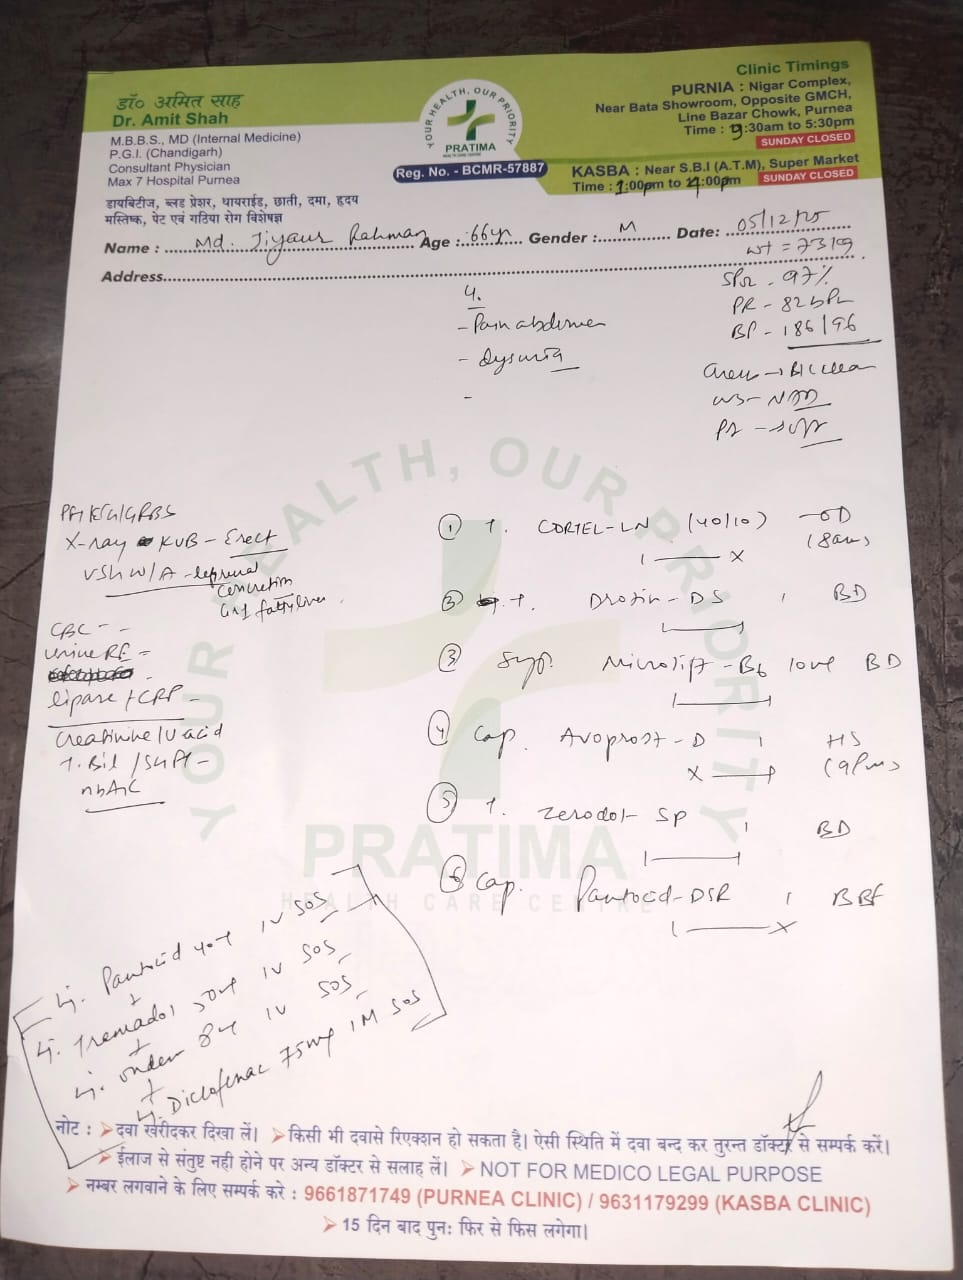 डॉ० अमित साह
Dr. Amit Shah
M.B.B.S., MD (Internal Medicine)
P.G.I. (Chandigarh)
Consultant Physician
Max 7 Hospital Purnea
डायबिटीज, ब्लड प्रेशर, थायराईड, छाती, दमा, हृदय
मस्तिष्क, पेट एवं गठिया रोग विशेषज्ञ
YOUR HEALTH, OUR PRIORITY
PRATIMA
HEALTH CARE CENTRE
Reg. No. - BCMR-57887
Clinic Timings
PURNIA : Nigar Complex,
Near Bata Showroom, Opposite GMCH,
Line Bazar Chowk, Purnea
Time : 9:30am to 5:30pm
SUNDAY CLOSED
KASBA : Near S.B.I (A.T.M), Super Market
Time : 1:00pm to 4:00pm SUNDAY CLOSED
Name : Md. Jiyaur Rahman Age : 66yr Gender : M Date: 05/12/25
Address
SPo2 - 97%
PR - 82
BP - 186/96
- Pain abdomen
- dysuria
X-ray KUB - Erect
fatty liver
CBC -
Urine RE -
lipase + CRP -
Creatinine / U acid
T. Bil / SGPT -
HbA1C
① T. (40/10) OD
(8am)
1 X
② T. Drotin-DS 1 BD
③ Syp. BD
④ Cap. Avoprost-D 1 HS
X (9pm)
⑤ T. Zerodol-SP 1 BD
⑥ Cap. Pantocid-DSR 1 BBF
X
Pantocid IV SOS
+
Tramadol IV SOS
+
IV SOS
+
Diclofenac 75mg IM SOS
YOUR HEALTH, OUR PRIORITY
PRATIMA
HEALTH CARE CENTRE
नोट : दवा खरीदकर दिखा लें। किसी भी दवासे रिएक्शन हो सकता है। ऐसी स्थिति में दवा बन्द कर तुरन्त डॉक्टर से सम्पर्क करें।
ईलाज से संतुष्ट नही होने पर अन्य डॉक्टर से सलाह लें। NOT FOR MEDICO LEGAL PURPOSE
नम्बर लगवाने के लिए सम्पर्क करे : 9661871749 (PURNEA CLINIC) / 9631179299 (KASBA CLINIC)
15 दिन बाद पुनः फिर से फिस लगेगा।